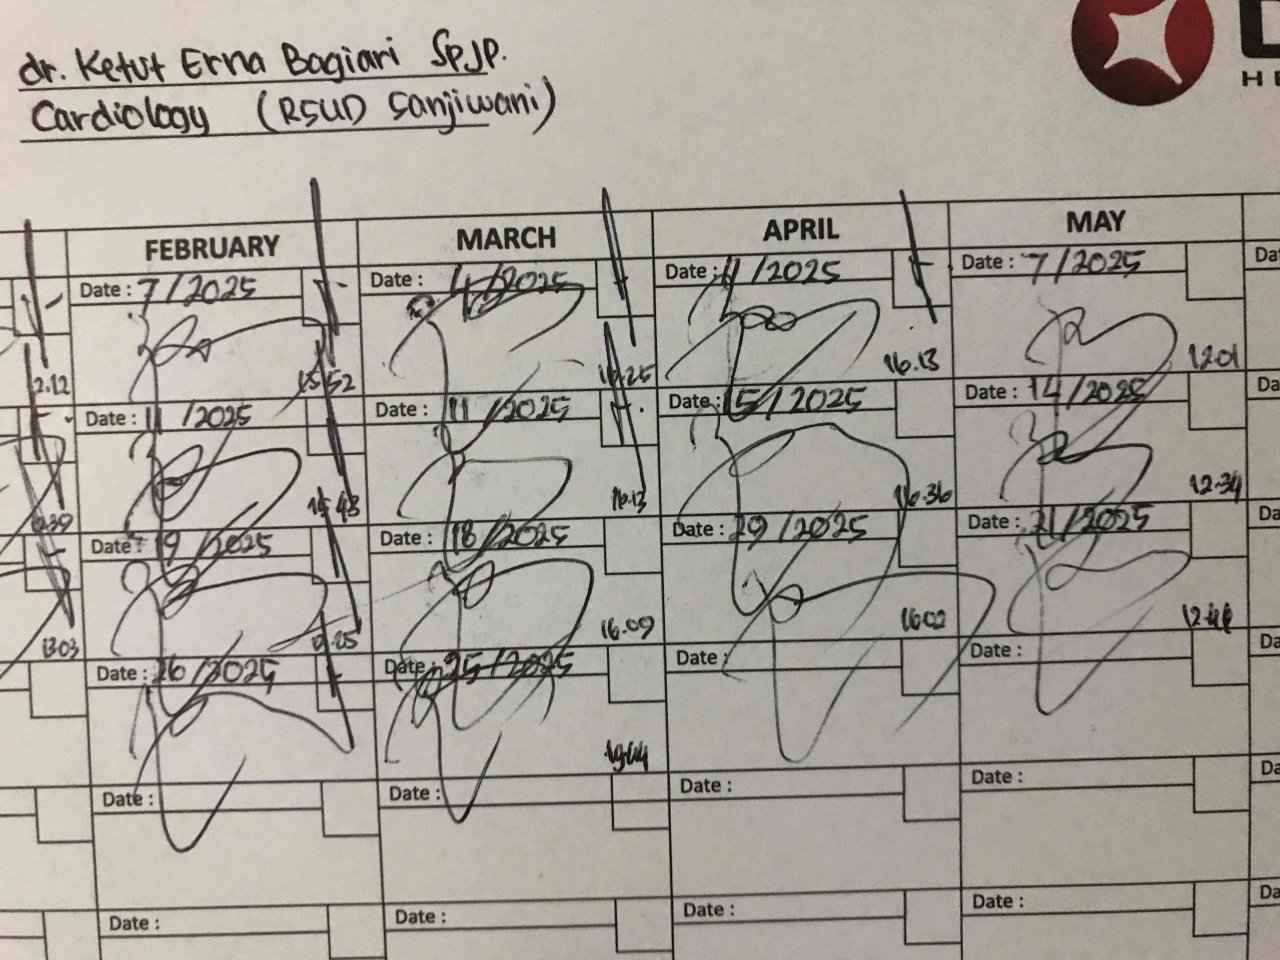 dr. Ketut Erna Bagiari SpJP.
Cardiology (RSUD Sanjiwani)
D
HE
FEBRUARY MARCH APRIL MAY
Date: 7/2025 Date: 4/2025 Date: /2025 Date: 7/2025 Da
2.12 15 52 16.25 16.13 12.01
Date: 11/2025 Date: 11/2025 Date: 15/2025 Date: 14/2025 Da
16.13 16.36 12.34
Date: 19/2025 Date: 18/2025 Date: 29/2025 Date: 21/2025 Da
13.03 16.09 16.02
Date: 26/2025 Date: 25/2025 Date: Date: Da
Date: Date: Date: Date: Da
Date: Date: Date: Date: Da